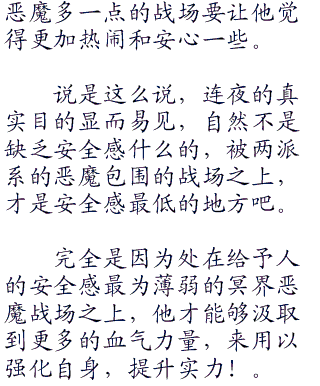 恶魔多一点的战场要让他觉
得更加热闹和安心一些。
说是这么说，连夜的真
实目的显而易见，自然不是
缺乏安全感什么的，被两派
系的恶魔包围的战场之上，
才是安全感最低的地方吧。
完全是因为处在给予人
的安全感最为薄弱的冥界恶
魔战场之上，他才能够汲取
到更多的血气力量，来用以
强化自身，提升实力！。